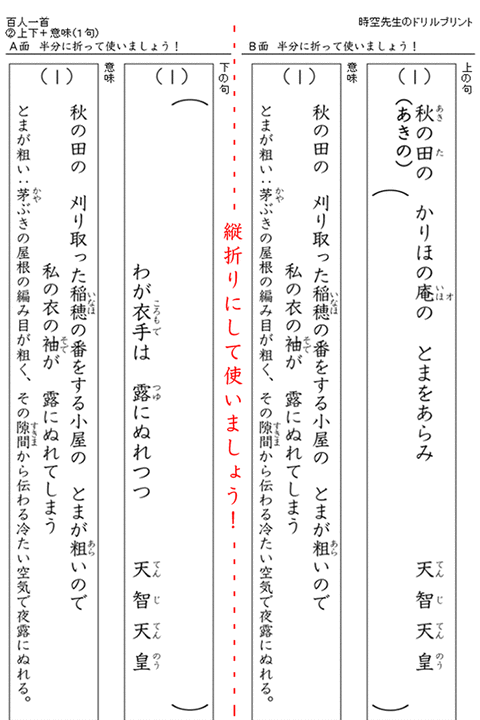 百人一首
②上下＋意味(1句)
時空先生のドリルプリント
A面 半分に折って使いましょう！
B面 半分に折って使いましょう！
上の句
(1)
秋の田の かりほの庵の とまをあらみ 天智天皇
あき た いほ オ てん じ てん のう
(あきの)
( )
意味
(1)
秋の田の 刈り取った稲穂の番をする小屋の とまが粗いので
いなほ あら
私の衣の袖が 露にぬれてしまう
そで
とまが粗い：茅ぶきの屋根の編み目が粗く、その隙間から伝わる冷たい空気で夜露にぬれる。
かや すきま
縦折りにして使いましょう！
下の句
(1)
( )
わが衣手は 露にぬれつつ 天智天皇
ころもで つゆ てん じ てん のう
意味
(1)
秋の田の 刈り取った稲穂の番をする小屋の とまが粗いので
いなほ あら
私の衣の袖が 露にぬれてしまう
そで
とまが粗い：茅ぶきの屋根の編み目が粗く、その隙間から伝わる冷たい空気で夜露にぬれる。
かや すきま